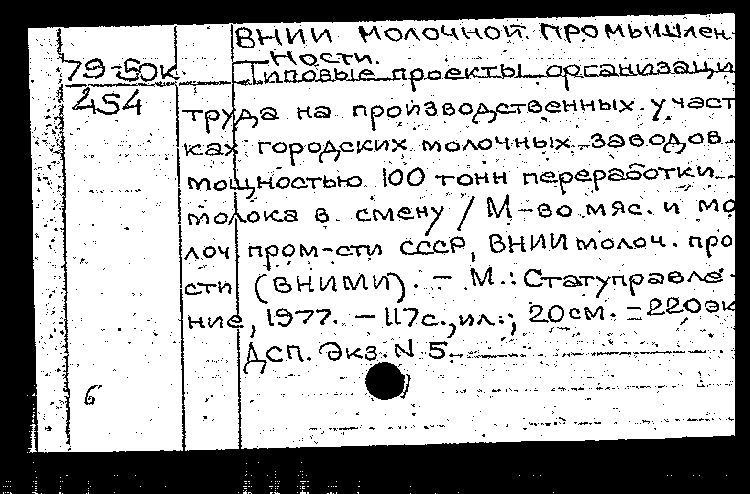 ВНИИ молочной промышлен-
ности.
79-50к Типовые проекты организаци
454 труда на производственных участ
ках городских молочных заводов
мощностью 100 тонн переработки
молока в смену / М-во мяс. и мо
лоч пром-сти СССР, ВНИИ молоч. про
сти (ВНИМИ). - М.: Статуправле-
ние, 1977. - 117с., ил.; 20см. = 220эк
ДСП. Экз. N 5.
6